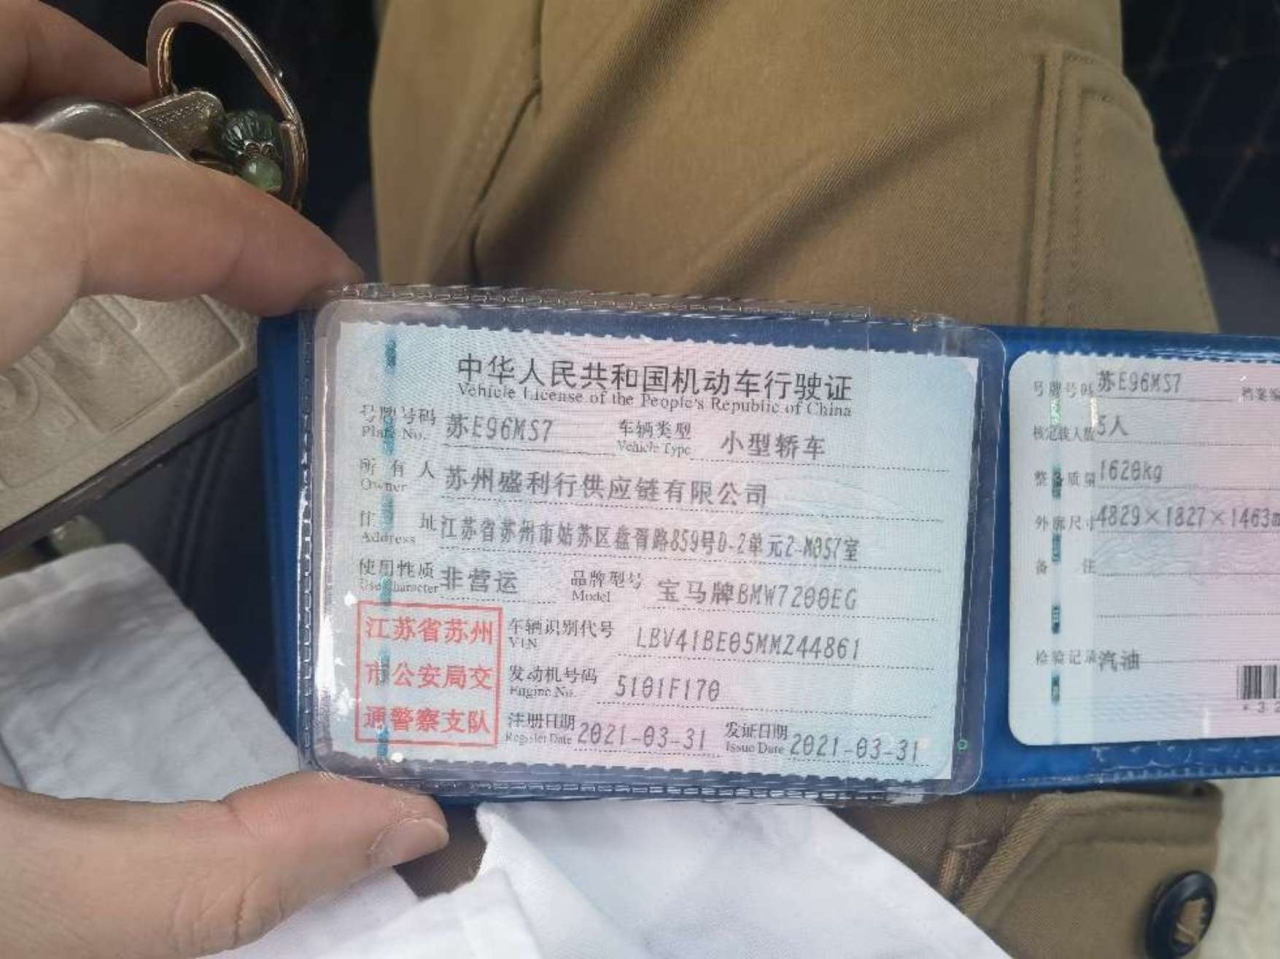 中华人民共和国机动车行驶证
Vehicle License of the People's Republic of China
号牌号码 苏E96MS7 车辆类型 小型轿车
Plate No. Vehicle Type
所有人 苏州盛利行供应链有限公司
Owner
住址 江苏省苏州市姑苏区盘胥路859号D-2单元2-M057室
Address
使用性质 非营运 品牌型号 宝马牌BMW7200EG
Use Character Model
江苏省苏州
市公安局交
通警察支队
车辆识别代号 LBV41BE05MMZ44861
VIN
发动机号码 5101F170
Engine No.
注册日期 2021-03-31 发证日期 2021-03-31
Register Date Issue Date
号牌号码 苏E96MS7 档案编
核定载人数 5人
整备质量 1620kg
外廓尺寸 4829×1827×1463
备注
检验记录 汽油